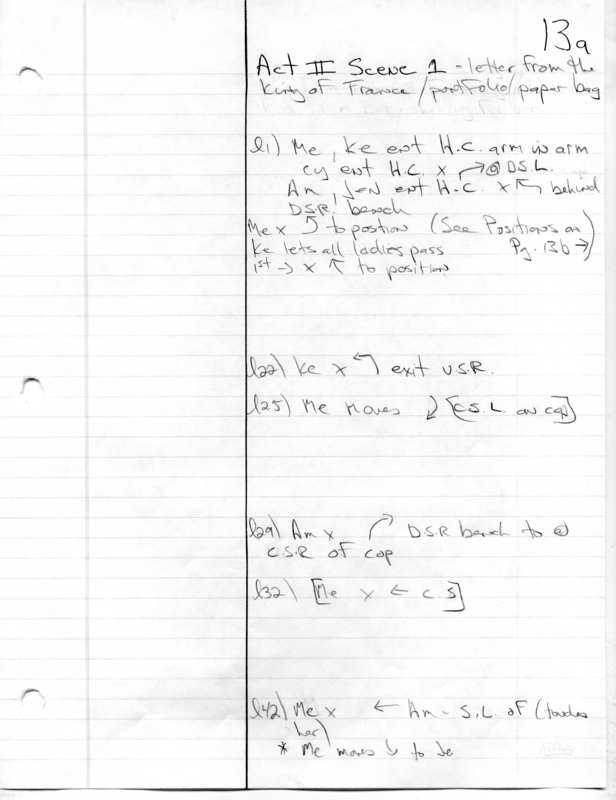 13a
Act II Scene 1 - letter from the
King of France/portfolio/paper bag
l1) Me, Ke ent H.C. arm in arm
Cy ent H.C. x → @ D.S.L.
Am, Jen ent H.C. x ↖ behind
D.S.R. bench
Me x ⤴ to postion (See Positions on
Ke lets all ladies pass Pg. 13b →)
1st → x ↖ to position
l22) Ke x ↰ exit U.S.R.
l25) Me moves ↓ [C.S.L. on cop]
l29) Am x ↱ D.S.R bench to @
C.S.R of cop
l32) [Me x ← C.S]
l42) Me x ← Am - S.L. of (touches
her)
* Me moves ↓ to Je